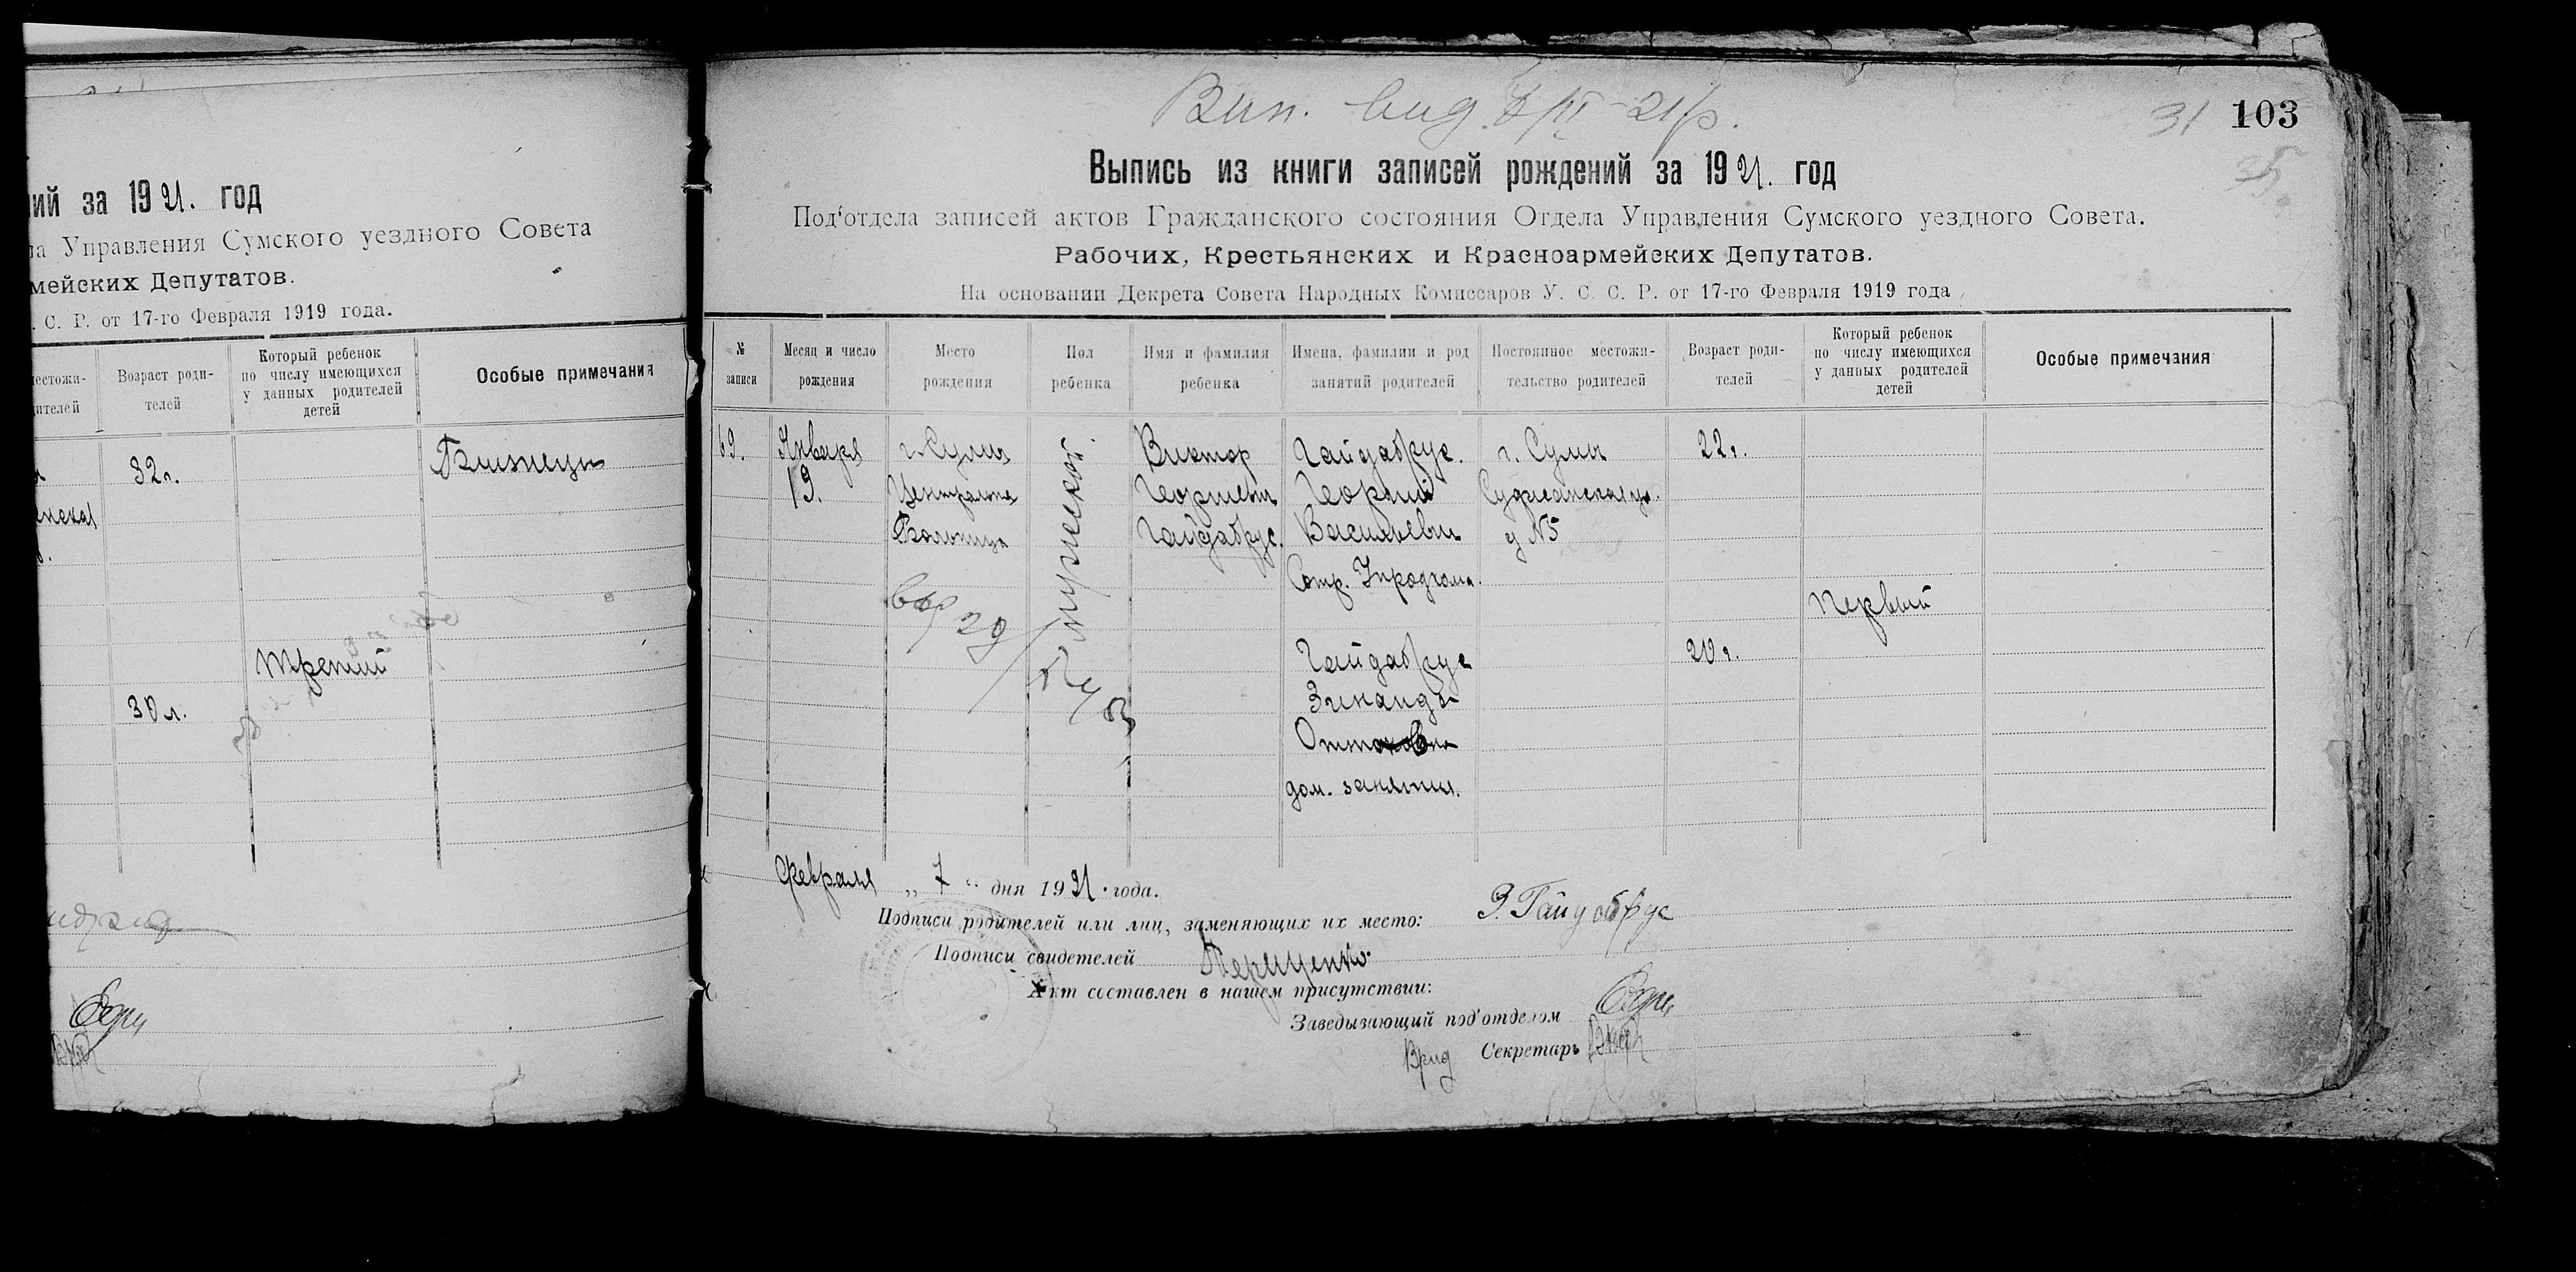 ий за 1921. год
ла Управления Сумского уездного Совета
мейских Депутатов.
. С. Р. от 17-го Февраля 1919 года.
естожи-
ителей
Возраст роди-
телей
Который ребенок
по числу имеющихся
у данных родителей
детей
Особые примечания
32 г.
Близнецы
Третий
30 л.
Вип. вид. 21 р.
31 103
Выпись из книги записей рождений за 1921. год
Под'отдела записей актов Гражданского состояния Отдела Управления Сумского уездного Совета.
Рабочих, Крестьянских и Красноармейских Депутатов.
На основании Декрета Совета Народных Комиссаров У. С. С. Р. от 17-го Февраля 1919 года
№
записи
Месяц и число
рождения
Место
рождения
Пол
ребенка
Имя и фамилия
ребенка
Имена, фамилии и род
занятий родителей
Постоянное местожи-
тельство родителей
Возраст роди-
телей
Который ребенок
по числу имеющихся
у данных родителей
детей
Особые примечания
69.
Января
19.
г. Сумы
Центральна
Больница
Мужеской.
Виктор
Георгиевич
Гайдабрус.
Гайдабрус.
Георгий
Васильевич
Сотр. Упродкома.
Гайдабрус
Зинаида
Оттовна
дом. занятия.
г. Сумы
Суджанская ул.
д №5
22 г.
20 г.
Первый
Февраля „ 7 “ дня 1921. года.
Подписи родителей или лиц, заменяющих их место: З. Гайдабрус
Подписи свидетелей
Акт составлен в нашем присутствии:
Заведывающий под'отделом
Врид Секретарь